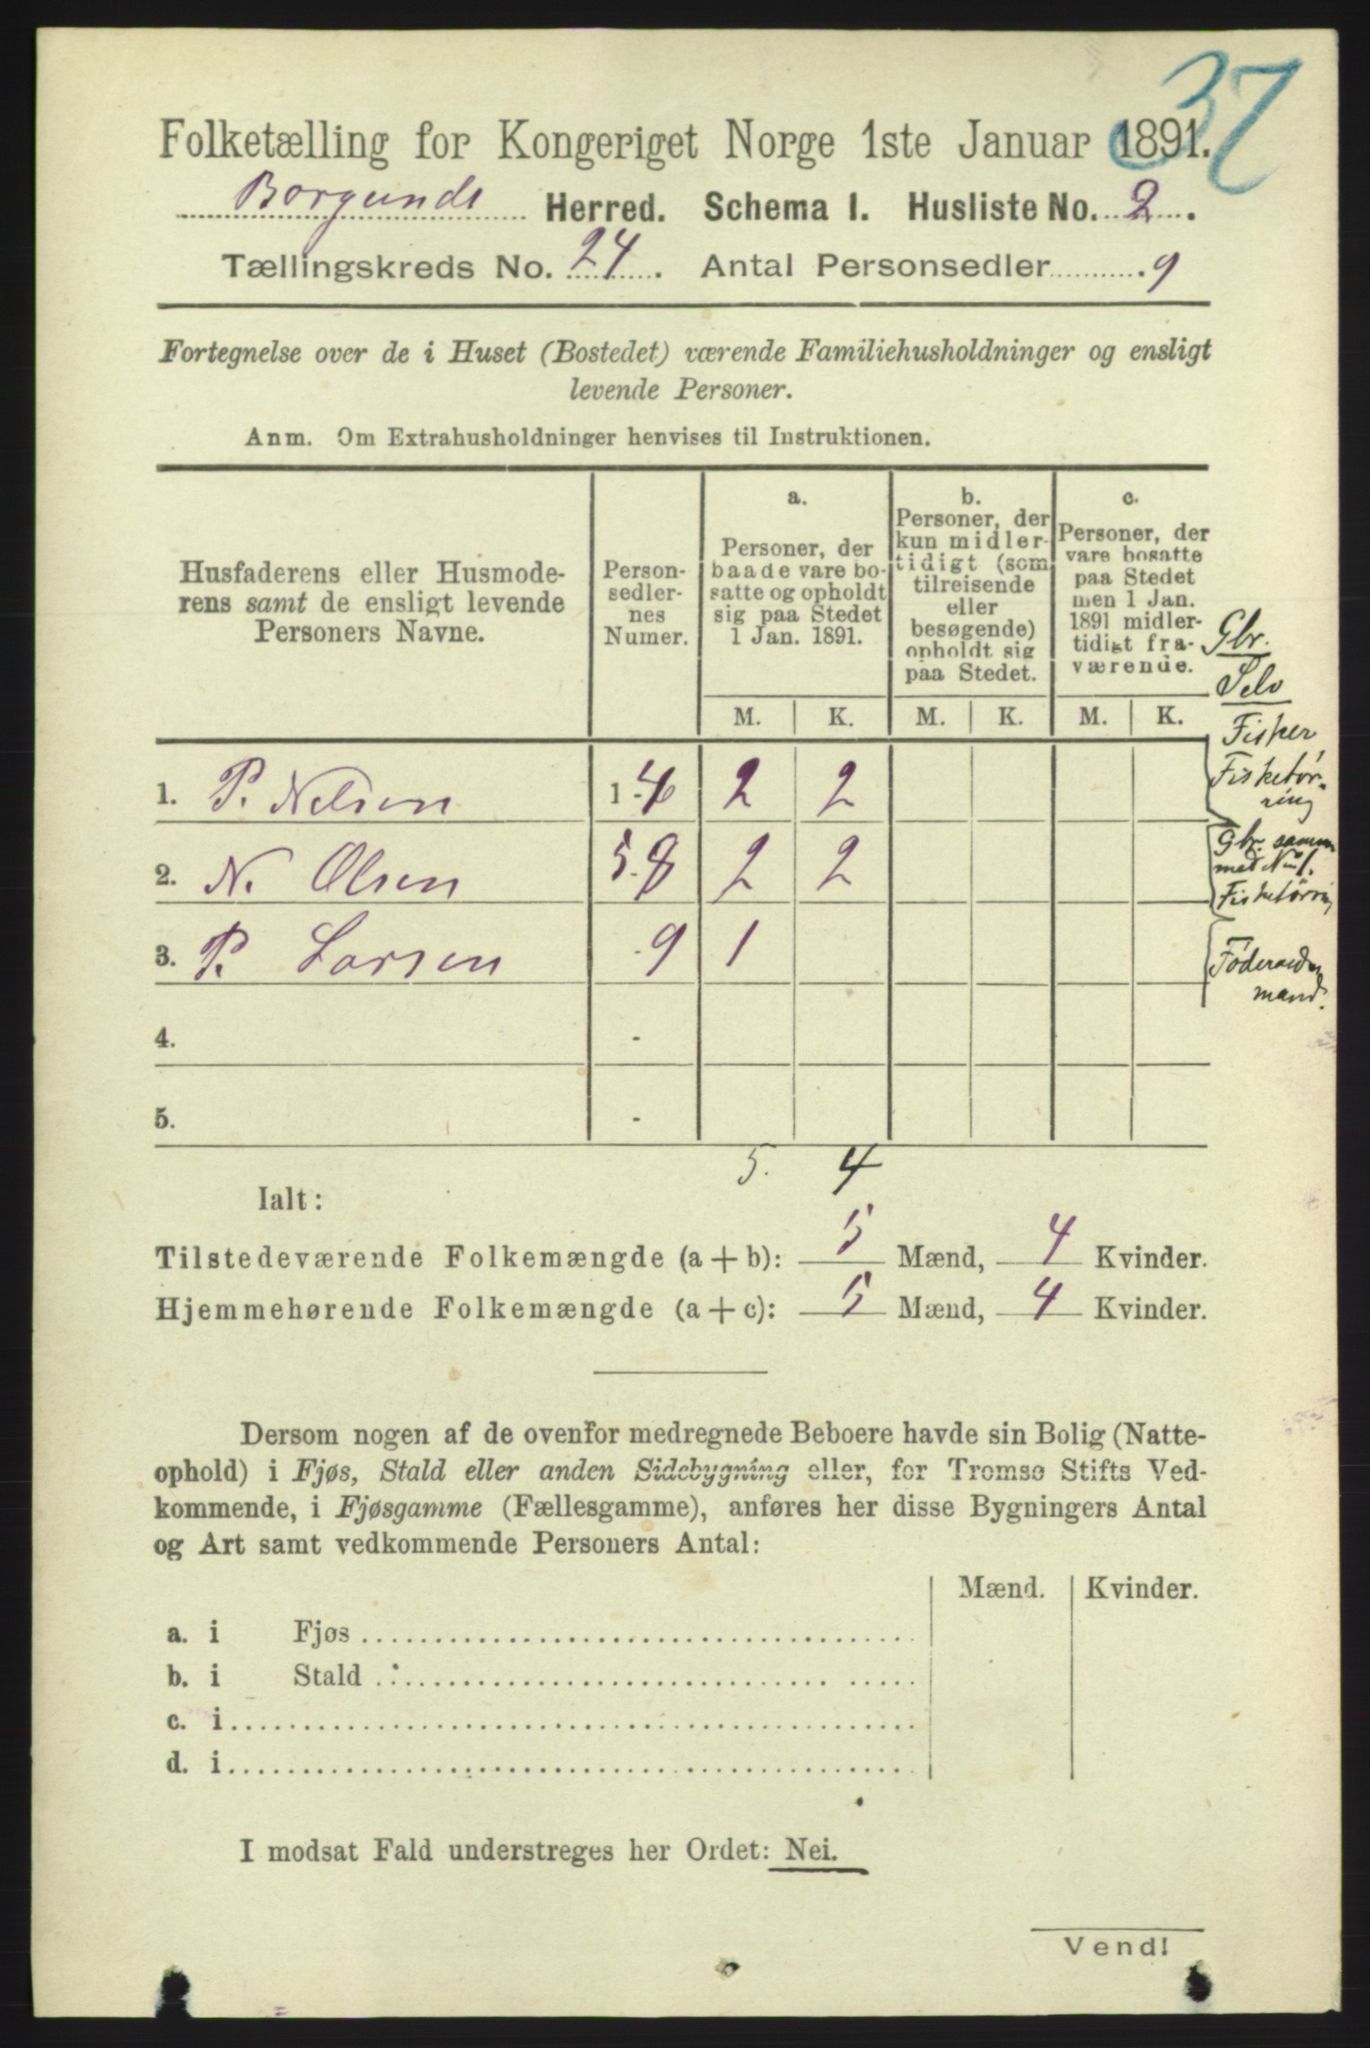 37
Folketælling for Kongeriget Norge 1ste Januar 1891.
Borgunds Herred. Schema I. Husliste No. 2.
Tællingskreds No. 24. Antal Personsedler 9
Fortegnelse over de i Huset (Bostedet) værende Familiehusholdninger og ensligt
levende Personer.
Anm. Om Extrahusholdninger henvises til Instruktionen.
Husfaderens eller Husmode-
rens samt de ensligt levende
Personers Navne.
Person-
sedler-
nes
Numer.
a.
Personer, der
baade vare bo-
satte og opholdt
sig paa Stedet
1 Jan. 1891.
b.
Personer, der
kun midler-
tidigt (som
tilreisende
eller
besøgende)
opholdt sig
paa Stedet.
c.
Personer, der
vare bosatte
paa Stedet
men 1 Jan.
1891 midler-
tidigt fra-
værende.
M. K. M. K. M. K.
Gbr.
Selv
Fisker
Fisketør-
ring
1. P. Nelsen 1-4 2 2
Gbr. samm
med No 1.
Fisketørrin
2. N. Olsen 5-8 2 2
3. P. Larsen - 9 1
Føderaads
mand.
4. -
5. -
5. 4
Ialt:
Tilstedeværende Folkemængde (a + b): 5 Mænd, 4 Kvinder.
Hjemmehørende Folkemængde (a + c): 5 Mænd, 4 Kvinder.
Dersom nogen af de ovenfor medregnede Beboere havde sin Bolig (Natte-
ophold) i Fjøs, Stald eller anden Sidebygning eller, for Tromsø Stifts Ved-
kommende, i Fjøsgamme (Fællesgamme), anføres her disse Bygningers Antal
og Art samt vedkommende Personers Antal:
Mænd. Kvinder.
a. i Fjøs
b. i Stald
c. i
d. i
I modsat Fald understreges her Ordet: Nei.
Vend!